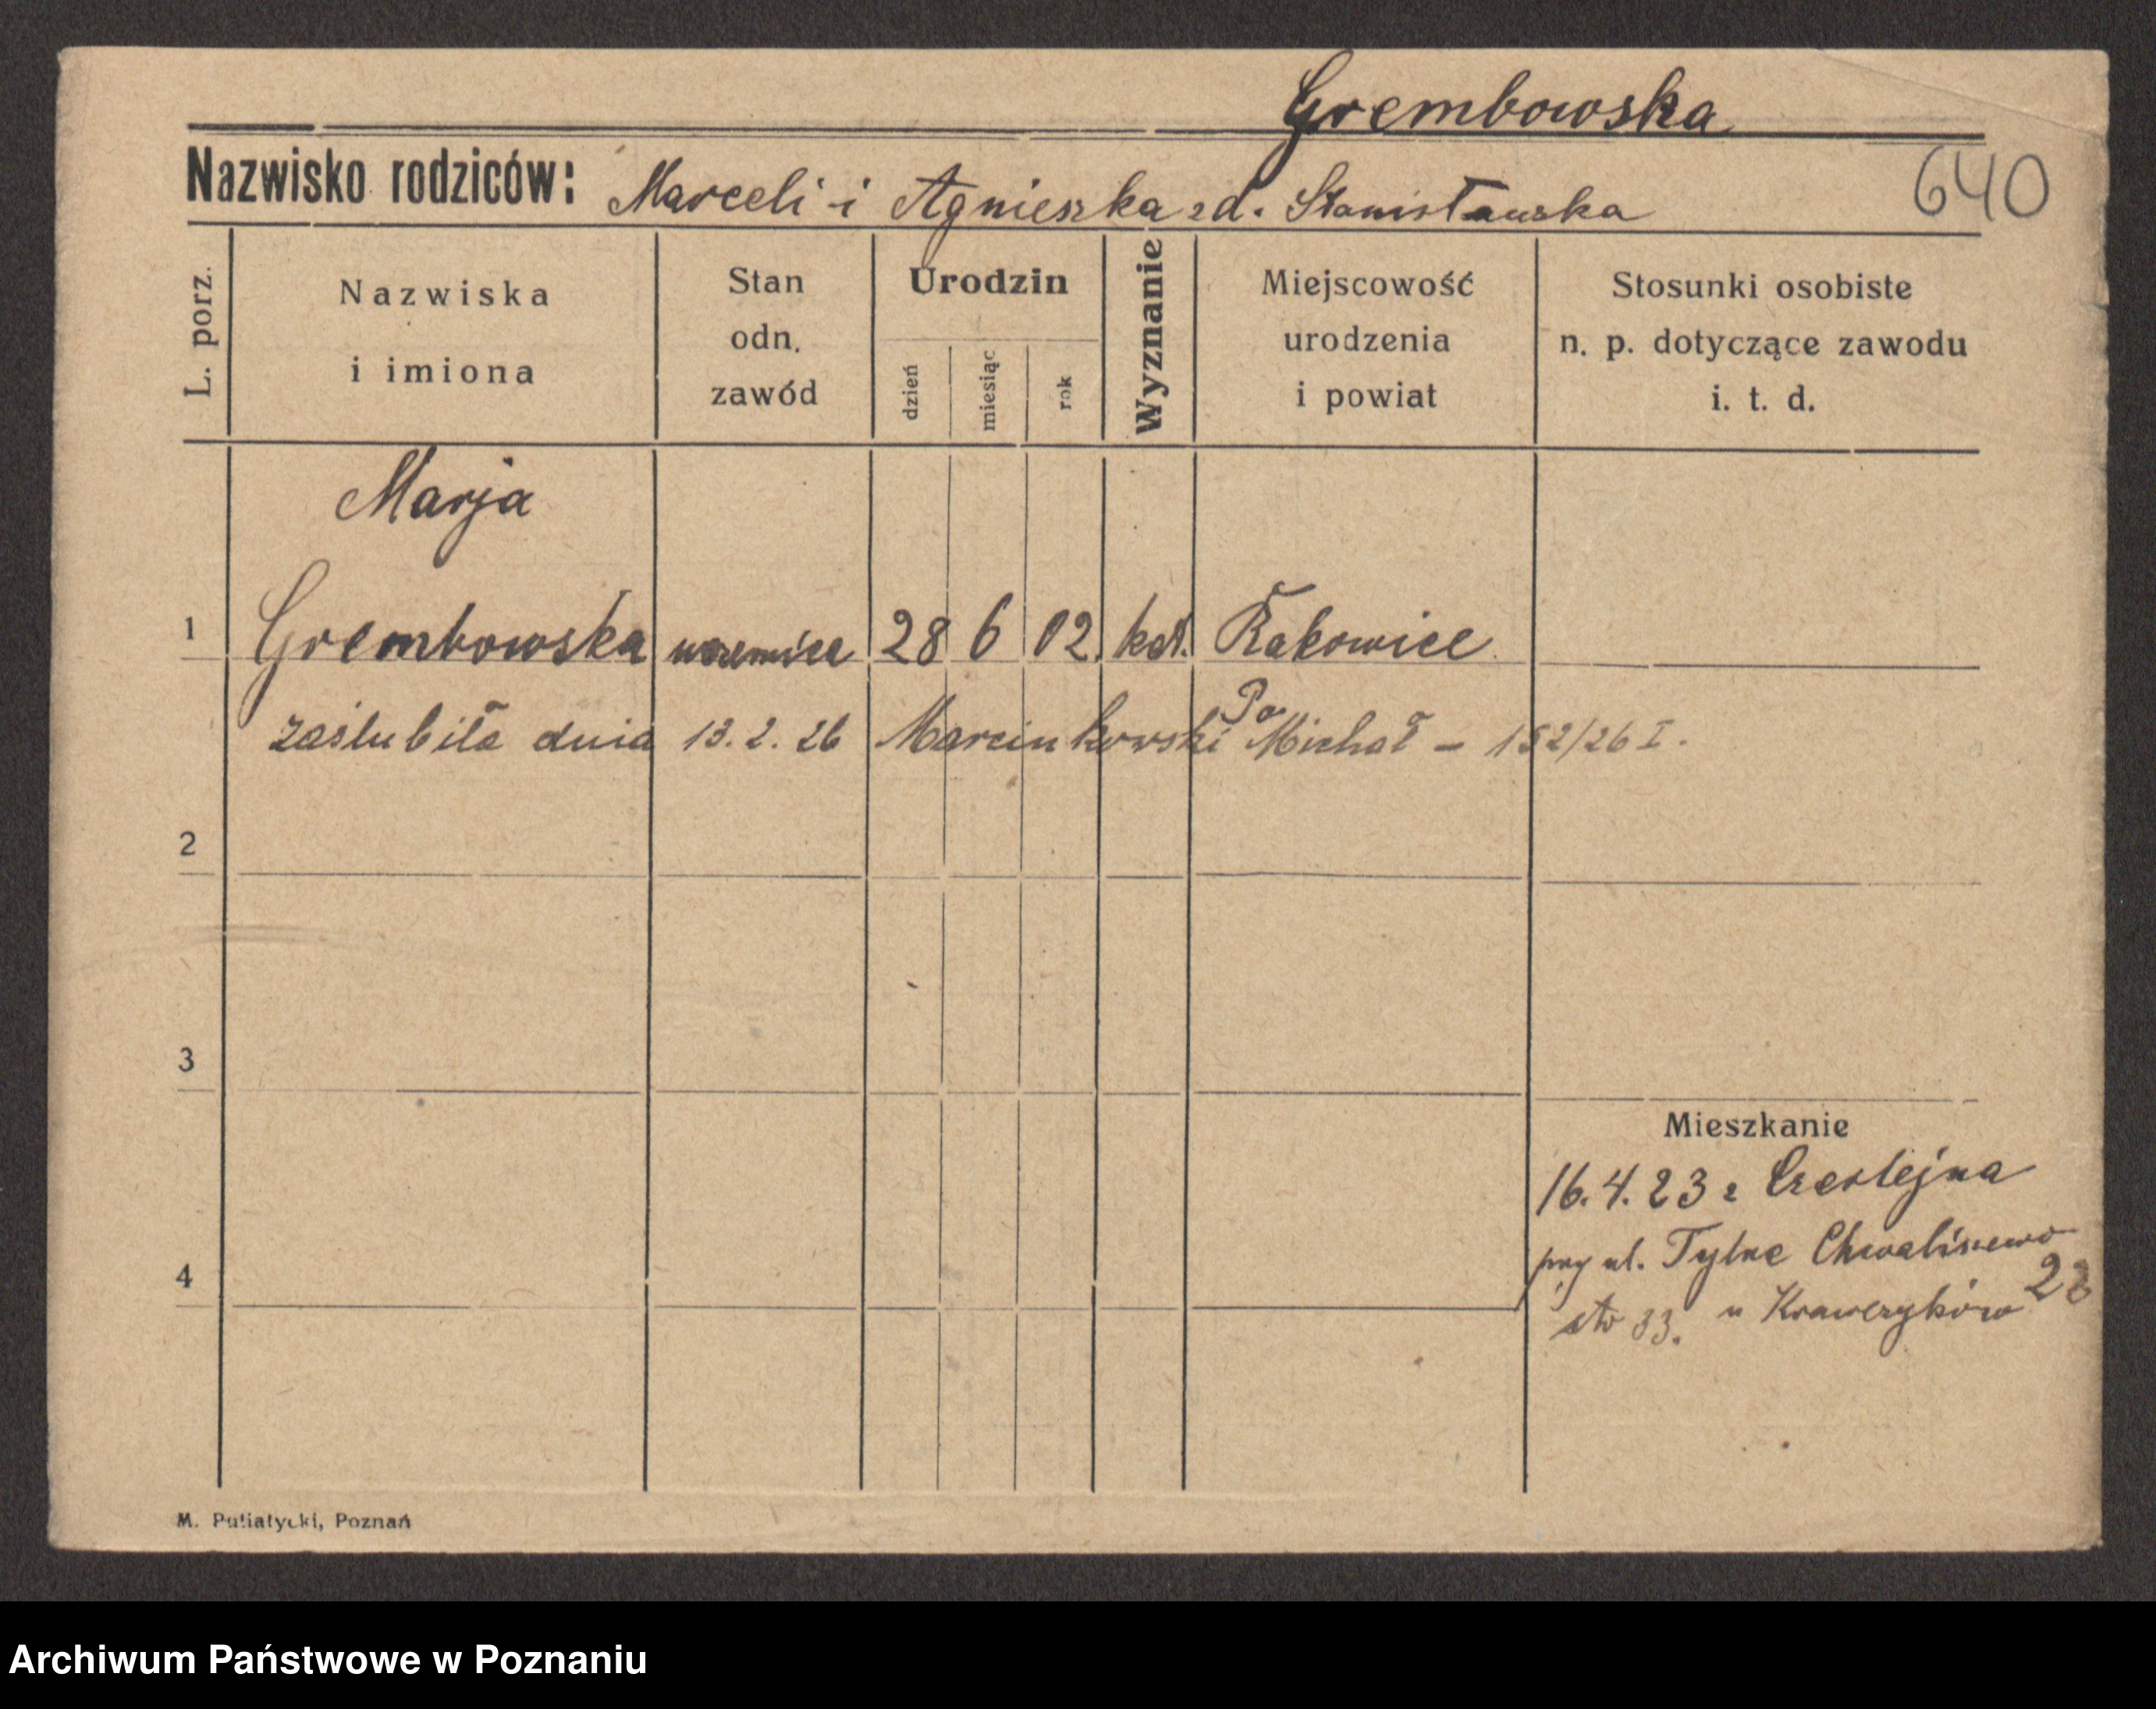 Grembowska
Nazwisko rodziców: Marceli i Agnieszka zd. Stanisławska
640
L. porz.
Nazwiska
i imiona
Stan
odn.
zawód
Urodzin
dzień
miesiąc
rok
Wyznanie
Miejscowość
urodzenia
i powiat
Stosunki osobiste
n. p. dotyczące zawodu
i. t. d.
Marja
1 Grembowska uczennica 28 6 02. kat. Rakowice
Po
zaślubiła dnia 13.2.26 Marcinkowski Michał - 152/26 I.
2
3
Mieszkanie
16.4.23 z Czerlejna
przy ul. Tylne Chwaliszewo
4
28
u Krawczyków
33.
M. Putiatycki, Poznań
Archiwum Państwowe w Poznaniu